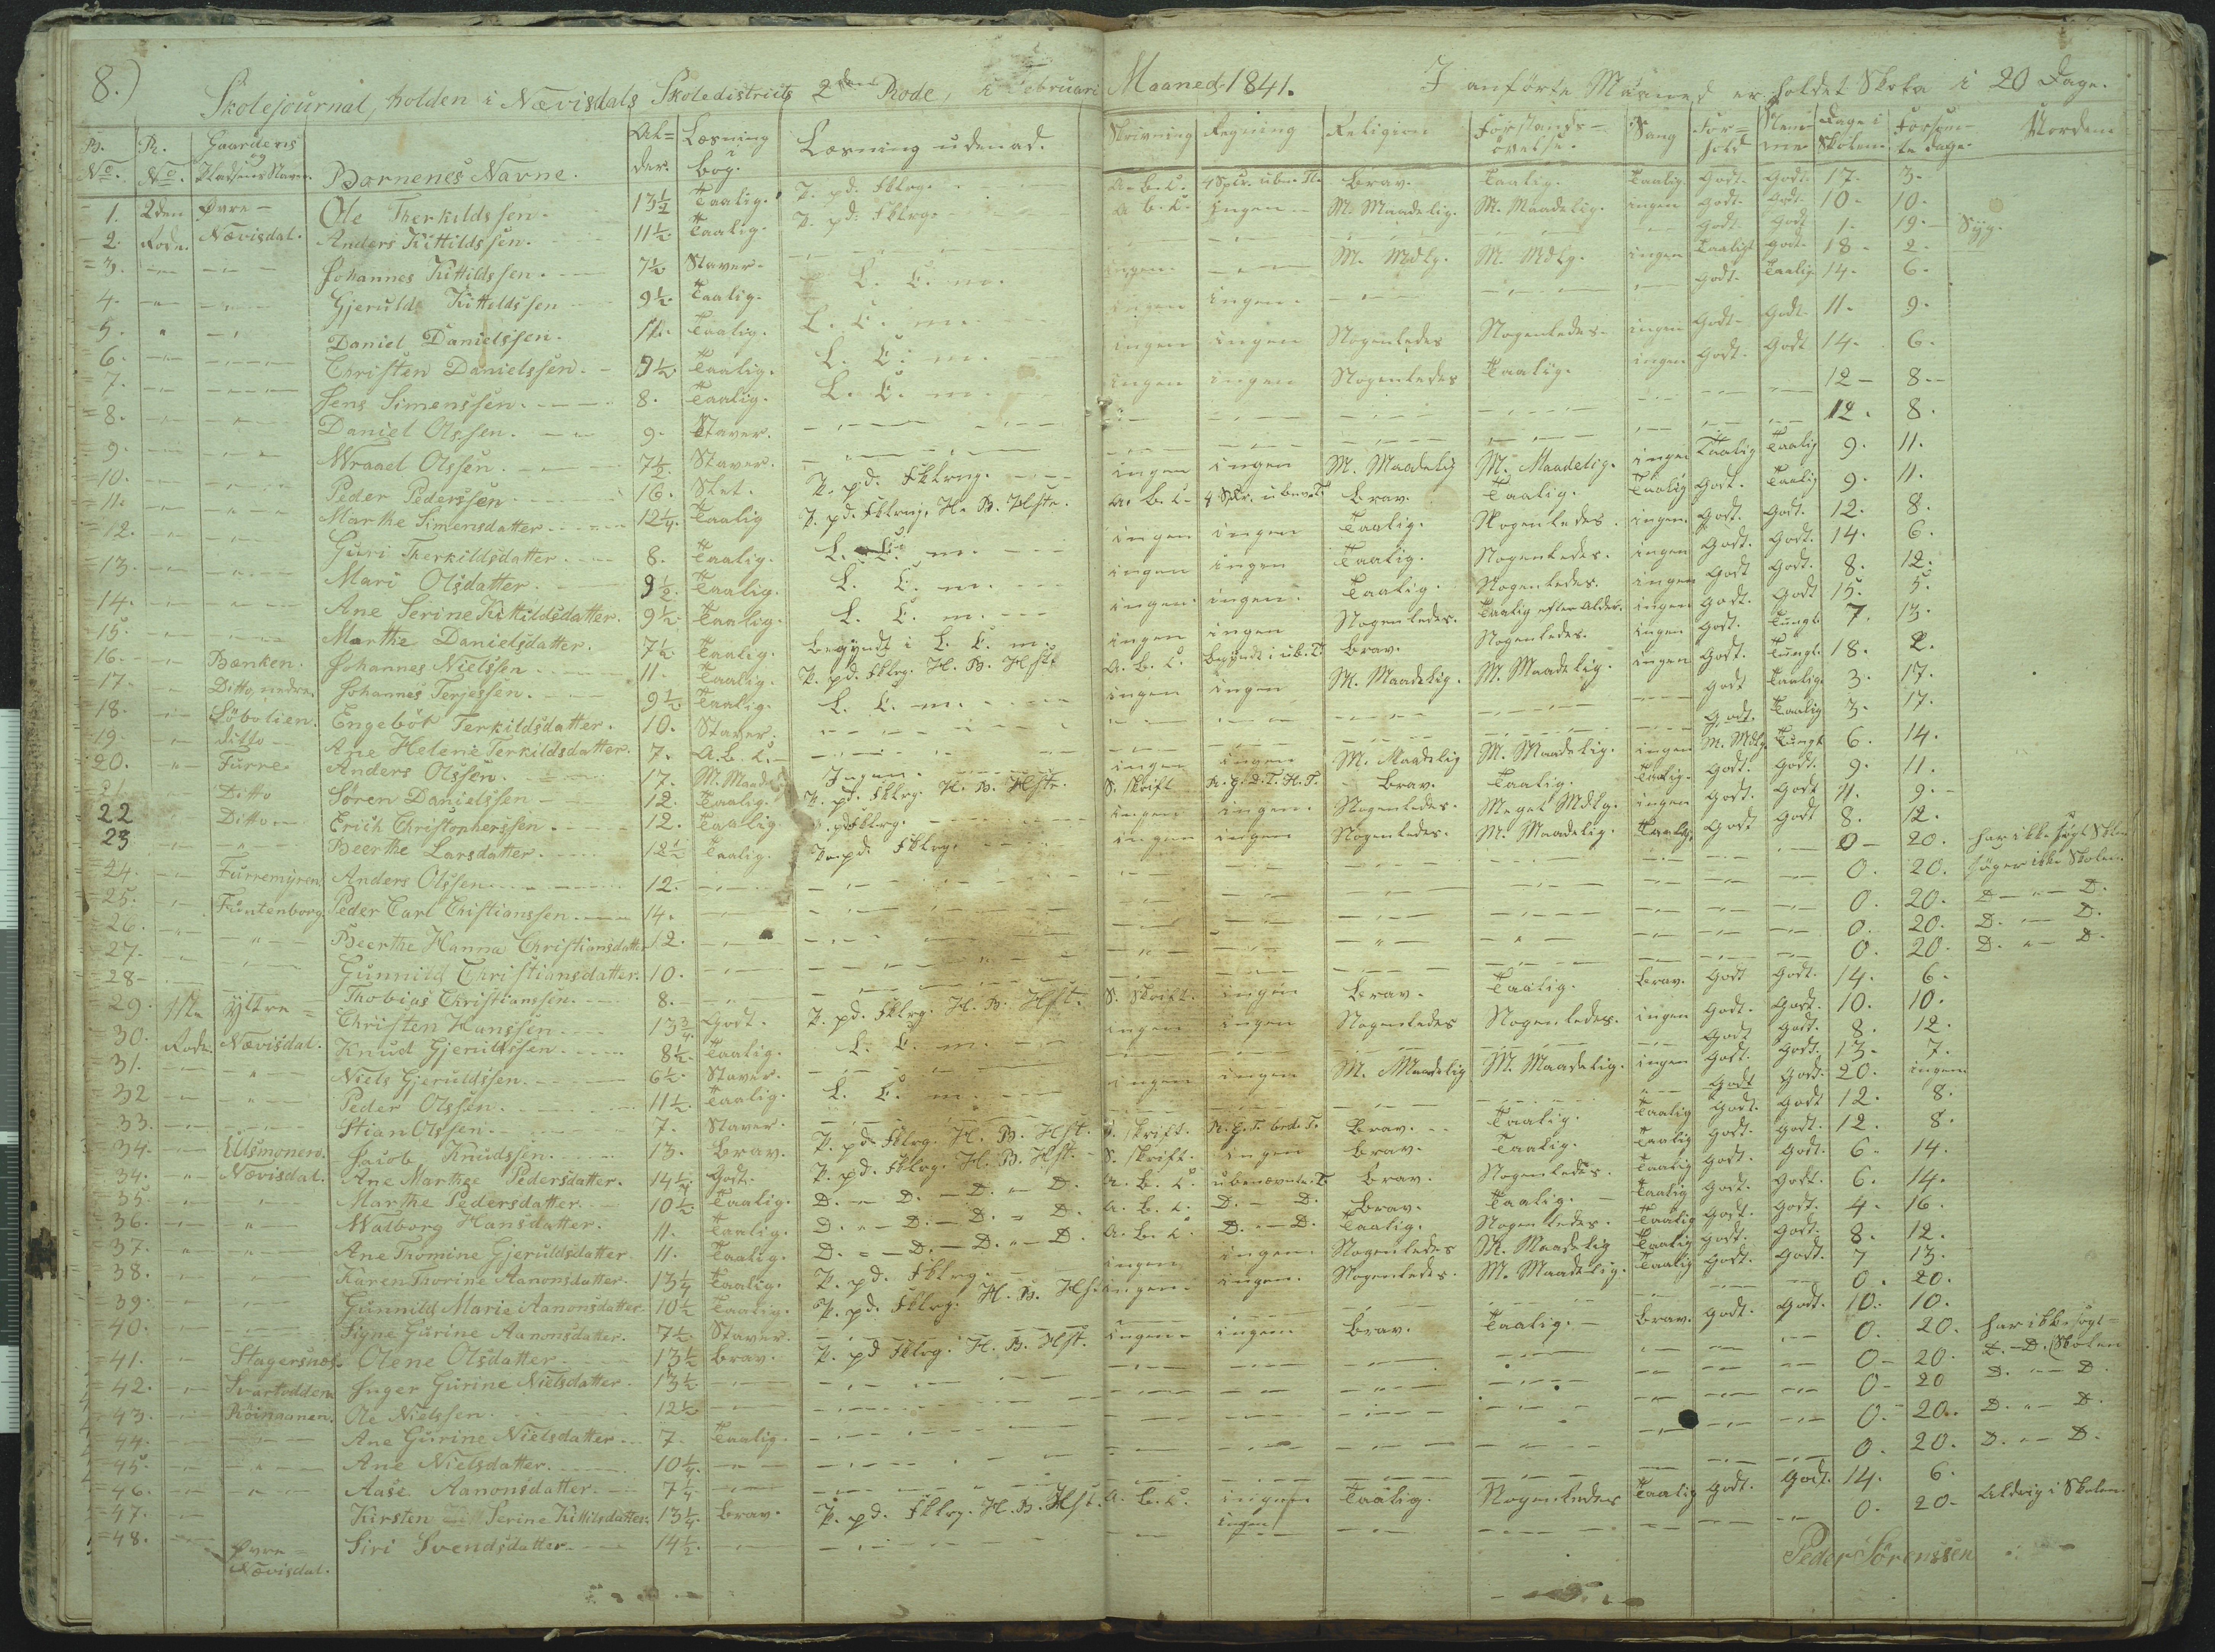 8.) Skolejournal, holden i Nævisdals Skoledistricts 2den Rode, i Februari Maaned 1841. I anførte Maaned er holdet Skole i 20 Dage.
B. No. R. No. Gaardens og Pladsens Navn. Børnenes Navne. Al=der. Læsning i bog. Læsning udenad. Skrivning Regning Religion Forstands-øvelse. Sang For=hold Nem=me Dage i Skolen Forsøm-te dage.
1. 2den Øvre- Ole Therkildssen. 13½ Taalig. P. pd. Fklrg. A. B. C. brav. Taalig. Taalig godt. godt. 17. 3.
2. Rode. Nævisdal. Anders Kittildssen. 11½ Taalig. P. pd. Fklrg. A. B. C. Ingen M. Maadelig. M. Maadelig. ingen godt. godt. 10. 10.
3. Johannes Kittildssen. 7½ Staver. godt. godt 1. 19. Syg.
4. Gjeruld Kittildssen 9½ Taalig. L. C. m. ingen. M. Mdlg. M. Mdlg. ingen Taalig godt. 18. 2.
5. Daniel Danielssen. 11. Taalig. L. C. m. ingen ingen. godt. Taalig 14. 6.
6. Christen Danielssen. 9½ Taalig. L. C. m. ingen ingen Nogenledes Nogenledes. ingen godt. godt. 11. 9.
7. Jens Simenssen. 8. Taalig. L. C. m. ingen ingen Nogenledes Taalig. ingen godt. godt 14. 6.
8. Daniel Olssen. 9. Staver. 12 8.
9. Wraael Olssen. 7½. Staver. 12. 8.
10. Peder Pederssen 16. Slet. P. pd. Fklrng. ingen ingen M. Maadelig M. Maadelig. ingen Taalig Taalig 9. 11.
11. Marthe Simensdatter 12¼. Taalig P. pd. Fklrng. H. B. Hfte. A. B. C. brav. Taalig. Taalig godt. Taalig 9. 11.
12. Guri Therkildsdatter. 8. Taalig. L. C. m. ingen ingen Taalig. Nogenledes. ingen. godt. godt. 12. 8.
13. Mari Olsdatter. 9½. Taalig. L. C. m. ingen ingen Taalig. Nogenledes. ingen godt. godt. 14. 6.
14. Ane Serine Kittildsdatter. 9½ Taalig. L. C. m. ingen. ingen. Taalig. Nogenledes. ingen godt godt. 8. 12.
15. Marthe Danielsdatter. 7½ Taalig. begyndt i L. C. m. ingen ingen Nogenledes. Taalig efter Alder. ingen godt. godt 15. 5.
16. Bænken. Johannes Nielssen 11. Taalig. P. pd. Fklrg. H. B. Hft A. B. C. begyndt i ub. T. brav. Nogenledes. ingen godt. tungt. 7. 13.
17. Ditto, nedre. Johannes Terjessen. 9½ Taalig. L. C. m. ingen ingen M. Maadelig. M. Maadelig. ingen godt. tungt. 18. 2.
18. Löbolien. Engebøt Terkildsdatter. 10. Staver. godt Taalig. 3. 17.
19. ditto Ane Helene Terkildsdatter. 7. A. B. C. godt. Taalig 3. 17.
20. Furre Anders Olssen. 17. M. Maad Ingen. ingen ingen M. Maadelig M. Maadelig. ingen M. Mdlg. tungt 6. 14.
21 Ditto Søren Danielssen 12. Taalig. P. pd. Fklrg. H. B. Hfte. S. Skrift brav. Taalig. Taalig. godt. godt. 9. 11.
22 Ditto Erich Christopherssen. 12. Taalig P. pd Fklrg. ingen ingen. Nogenledes. Meget Mdlg. ingen godt. godt 11. 9.
23 Beerthe Larsdatter. 12½ Taalig. P. pd. Fklrg. ingen ingen Nogenledes. M. Maadelig. Taalig. godt godt 8. 12.
24. Furremyren. Anders Olssen 12. 0 20. har ikke søgt Skolen
25. Funtenborg. Peder Carl Christianssen. 14. 0. 20. søger ikke Skolen.
26. Beerthe Hanna Christiansdatter 12. 0. 20. D. D.
27. Gunnild Christiansdatter. 10. 0. 20. D. D.
28 Thobias Christianssen. 8. 0. 20. D. D.
29. 1ste Yttre= Christen Hanssen. 13¾ Godt. P. pd. Fklrg. H. B. Hft. S. Skrift. ingen brav. Taalig. brav. godt godt. 14. 6.
30. Rode. Nævisdal. Knud Gjeruldssen. 8½. Taalig. L. C. m. ingen ingen Nogenledes Nogenledes. ingen godt. godt. 10. 10.
31. Niels Gjeruldssen. 6½. Staver. godt godt. 8. 12.
32 Peder Olssen. 11½. Taalig. L. C. m. ingen ingen M. Maadelig M. Maadelig. ingen godt. godt. 13. 7.
33. Stian Olssen. 7. Staver. godt godt. 20. ingen.
34. Ulsmonen. Jacob Knudssen. 13. brav. P. pd. Fklrg. H. B. Hft. S. Skrift. brav. Taalig. Taalig godt. godt 12. 8.
34. Nævisdal. Ane Marthge Pedersdatter. 14¼. Godt. P. pd. Fklrg. H. B. Hft. S. Skrift. ingen brav. Taalig. Taalig godt. godt. 12. 8.
35. Marthe Pedersdatter. 10½ Taalig. D. D. D. D. A. B. C. ubenævnte T. brav. Nogenledes. Taalig godt. godt. 6. 14.
36. Walborg Hansdatter. 11. Taalig. D. D. D. D. A. B. C. D. D. brav. Taalig. Taalig godt. godt. 6. 14.
37. Ane Tromine Gjeruldsdatter. 11. Taalig. D. D. D. D. A. B. C. D. D. Taalig. Nogenledes. Taalig godt. godt. 4. 16.
38. Karen Thorine Aanonsdatter. 13¼ Taalig. P. pd. Fklrg. ingen ingen. Nogenledes M. Maadelig Taalig godt. godt. 8. 12.
39. Gunnild Marie Aanonsdatter 10½ Taalig. P. pd. Fklrg. H. B. Hft ingen. ingen. Nogenledes. M. Maadelig. Taalig godt. godt. 7 13.
40. Signe Gurine Aanonsdatter. 7½ Staver. 0. 20.
41. Stagersnæs. Olene Olsdatter 13½ brav. P. pd Fklrg. H. B. Hft. ingen. ingen brav. Taalig. brav. godt. godt. 10. 10.
42. Svartodden. Inger Gurine Nielsdatter. 13½ 0. 20. har ikke søgt Skolen
43. Röinaanen. Ole Nielssen. 12½ 0. 20. D. D.
44. Ane Gurine Nielsdatter. 7. Taalig. 0. 20 D. D.
45. Ane Nielsdatter. 10¼. 0. 20. D. D.
46. Aase Aanonsdatter. 7¼ 0. 20. D. D.
47. Kirsten Serine Kittilsdatter. 13¼. brav. P. pd. Fklrg. H. B. Hft. A. B. C. ingen Taalig. Nogenledes Taalig godt. godt. 14. 6.
48. Øvre=Nævisdal. Siri Svendsdatter. 14½. ingen 0. 20. Aldrig i Skolen.
Peder Sörenssen